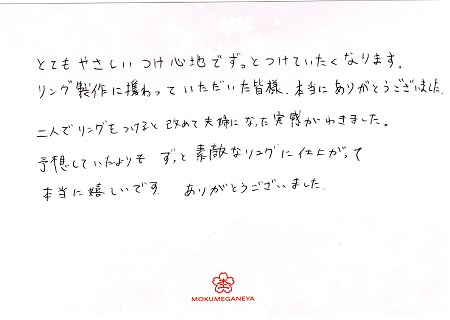 とてもやさしいつけ心地でずっとつけていたくなります。
リング製作に携わっていただいた皆様、本当にありがとうございました。
二人でリングをつけると改めて夫婦になった実感がわきました。
予想していたよりも ずっと素敵なリングに仕上がって
本当に嬉しいです。 ありがとうございました。
MOKUMEGANEYA